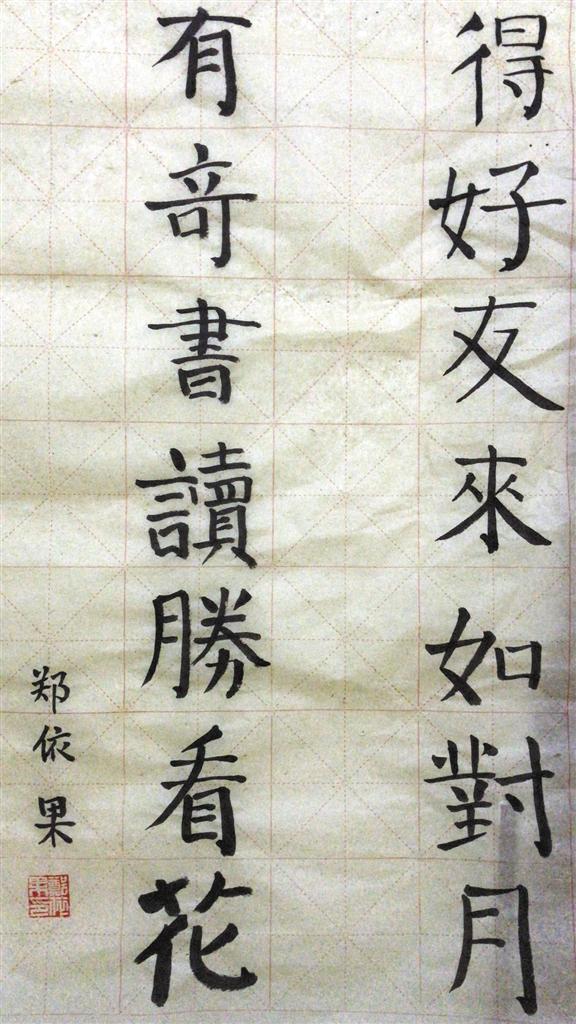 得好友來如對月
有奇書讀勝看花
郑依果